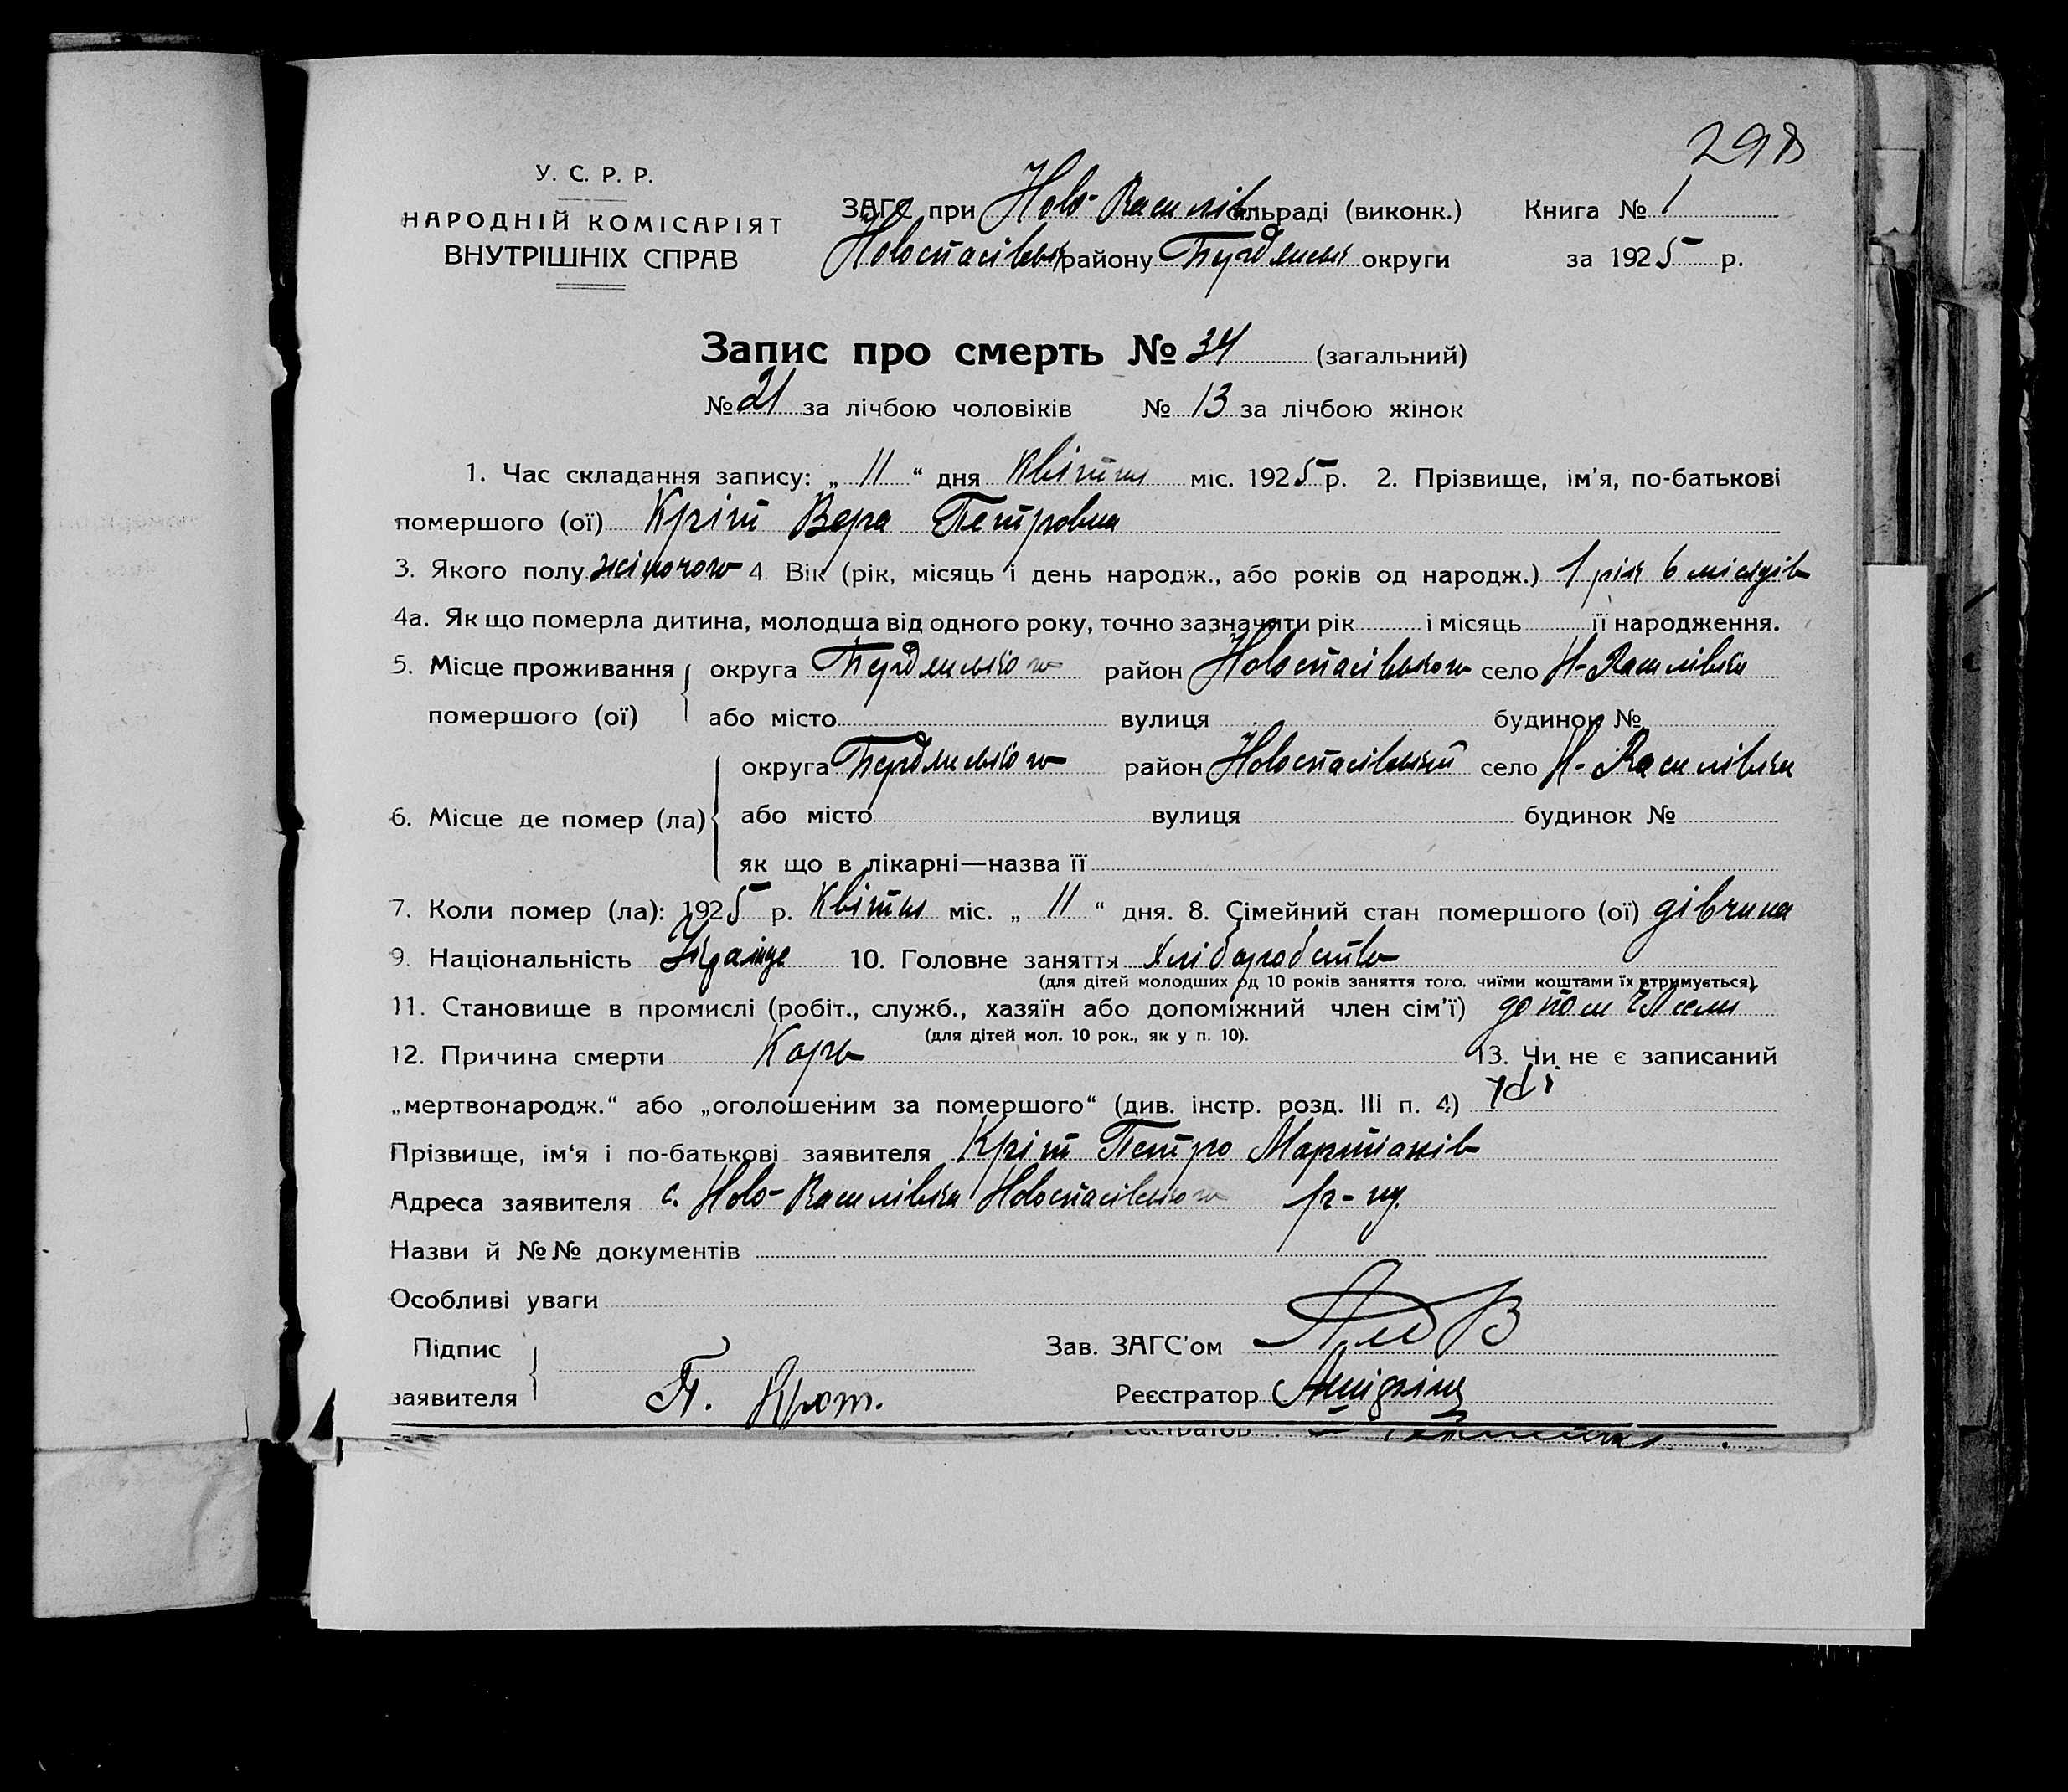 298
У. С. Р. Р.
НАРОДНІЙ КОМІСАРІЯТ
ВНУТРІШНІХ СПРАВ
ЗАГС при Ново-Василів сільраді (виконк.) Книга № 1
Новоспасівськ району Бердянськ округи за 1925 р.
Запис про смерть № 34 (загальний)
№ 21 за лічбою чоловіків № 13 за лічбою жінок
1. Час складання запису: „ 11 “ дня Квітня міс. 1925 р. 2. Прізвище, ім’я, по-батькові
помершого (ої) Кріт Вера Петровна
3. Якого полу жіночого 4. Вік (рік, місяць і день народж., або років од народж.) 1 рік 6 місяців
4а. Як що померла дитина, молодша від одного року, точно зазначити рік і місяць її народження.
5. Місце проживання округа Бердянського район Новоспасівського село Н-Василівка
помершого (ої) або місто вулиця будинок №
округа Бердянського район Новоспасівський село Н-Василівка
6. Місце де помер (ла) або місто вулиця будинок №
як що в лікарні—назва її
7. Коли помер (ла): 1925 р. Квітня міс. „ 11 “ дня. 8. Сімейний стан помершого (ої) дівчина
9. Національність 10. Головне заняття хліборобство
(для дітей молодших од 10 років заняття того, чиїми коштами їх втримується).
11. Становище в промислі (робіт., служб., хазяїн або допоміжний член сім’ї) допом
(для дітей мол. 10 рок., як у п. 10).
12. Причина смерти Корь 13. Чи не є записаний
„мертвонародж.“ або „оголошеним за помершого“ (див. інстр. розд. III п. 4)
Прізвище, ім‘я і по-батькові заявителя Кріт Петро Мартіанів
Адреса заявителя с. Ново-Василівка Новоспасівського р-ну.
Назви й №№ документів
Особливі уваги
Підпис Зав. ЗАГС’ом
заявителя П. Крот. Реєстратор
Реєстратор